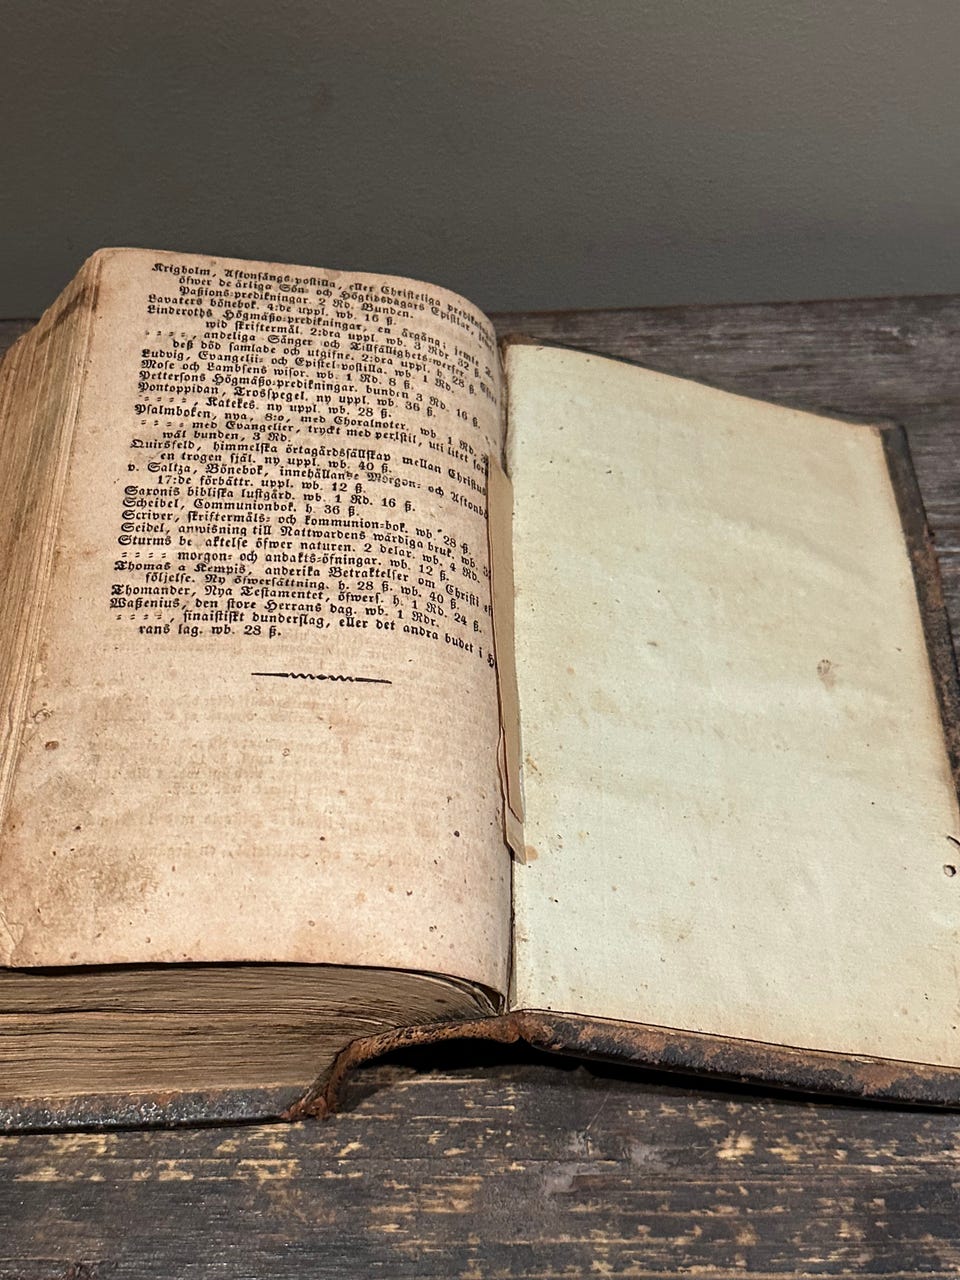 Krigholm, Aftonsångs-postilla, eller Christeliga predikningar
öfwer de årliga Sön- och Högtidsdagars Epistlar,
Paßions-predikningar. 2 Rd. Bunden.
Lavaters bönebok. 4:de uppl. wb. 16 ß.
Linderoths Högmäßo-predikningar, en årgång; jemte
wid skriftermål. 2:dra uppl. wb. 3 Rdr 32 ß.
= = = =, andeliga Sånger och Tillfällighets-werser,
deß död samlade och utgifne. 2:dra uppl. h. 28 ß.
Ludvig, Evangelii- och Epistel-postilla. wb. 1 Rd.
Mose och Lambsens wisor. wb. 1 Rd. 8 ß.
Pettersons Högmäßo-predikningar. bunden 3 Rd. 16 ß.
Pontoppidan, Trosspegel. ny uppl. wb. 36 ß.
= = = =, Katekes. ny uppl. wb. 28 ß.
Psalmboken, nya, 8:o, med Choralnoter. wb. 1 Rd.
= = = = med Evangelier, tryckt med perlstil, uti litet
wäl bunden, 3 Rd.
Quirsfeld, himmelska örtagårdssällskap mellan Christus
en trogen själ. ny uppl. wb. 40 ß.
v. Saltza, Bönebok, innehållande Morgon- och
17:de förbättr. uppl. wb. 12 ß.
Saxonis bibliska lustgård. wb. 1 Rd. 16 ß.
Scheibel, Communionbok. h 36 ß.
Scriver, skriftermåls- och kommunion-bok. wb. 28 ß.
Seidel, anwisning till Nattwardens wärdiga bruk. wb.
Sturms be aktelse öfwer naturen. 2 delar. wb. 4 Rd.
= = = = morgon- och andakts-öfningar. wb. 12 ß.
Thomas a Kempis, anderika Betraktelser om Christi
följelse. Ny öfwersättning. h. 28 ß. wb. 40 ß.
Thomander, Nya Testamentet, öfwers. h. 1 Rd. 24 ß.
Waßenius, den store Herrans dag. wb. 1 Rdr.
= = = =, sinaitiskt dunderslag, eller det andra budet i
rans lag. wb. 28 ß.